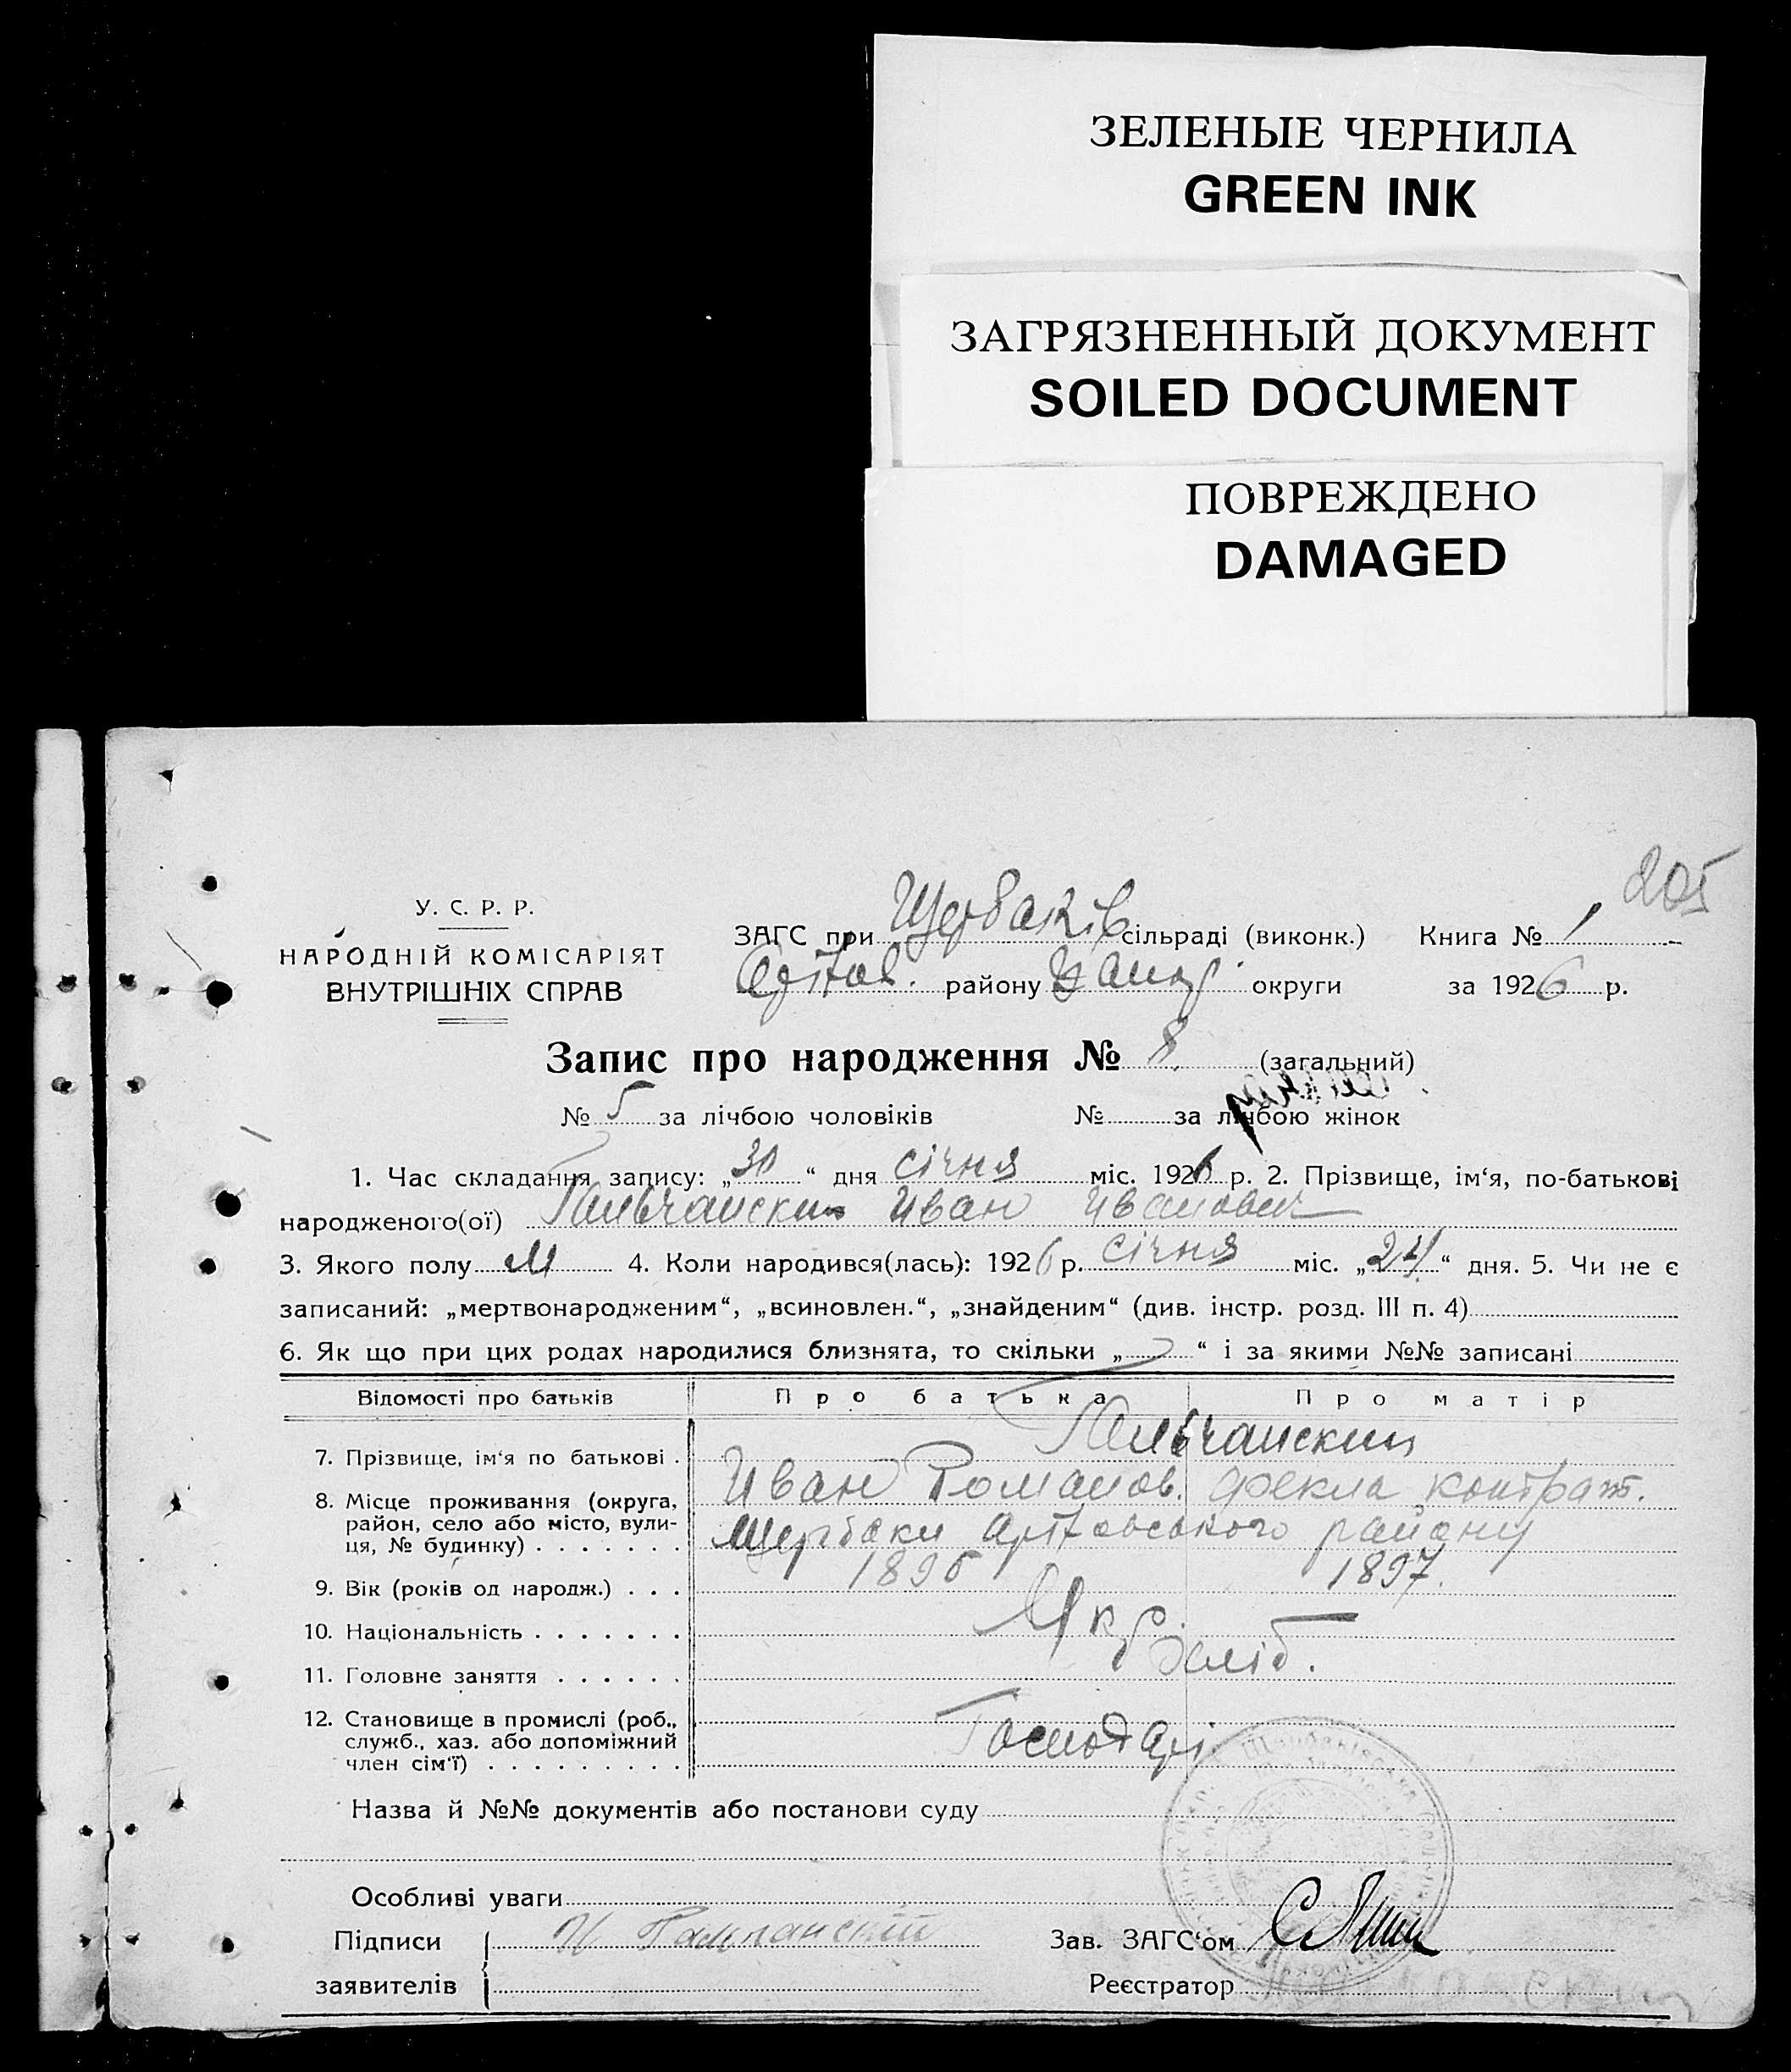 ЗЕЛЕНЫЕ ЧЕРНИЛА
GREEN INK
ЗАГРЯЗНЕННЫЙ ДОКУМЕНТ
SOILED DOCUMENT
ПОВРЕЖДЕНО
DAMAGED
205
У. С. Р. Р.
НАРОДНІЙ КОМІСАРІЯТ
ВНУТРІШНІХ СПРАВ
ЗАГС при Щербаків сільраді (виконк.) Книга № 1
району округи за 1926 р.
Запис про народження № 8 (загальний)
№ 5 за лічбою чоловіків № за лічбою жінок
1. Час складання запису: „30“ дня січня міс. 1926 р. 2. Прізвище, ім‘я, по-батькові
народженого(ої) Иван Иванович
3. Якого полу М 4. Коли народився(лась): 1926 р. січня міс. „24“ дня. 5. Чи не є
записаний: „мертвонародженим“, „всиновлен.“, „знайденим“ (див. інстр. розд. III п. 4)
6. Як що при цих родах народилися близнята, то скільки „ “ і за якими №№ записані
Відомості про батьків Про батька Про матір
7. Прізвище, ім‘я по батькові .
Иван Романов. Фекла Контрат.
8. Місце проживання (округа,
район, село або місто, вули-
ця, № будинку) . . . . . . .
Щербаки Артовського району
9. Вік (років од народж.) . . . 1895 1897.
10. Національність . . . . . . . Укр.
11. Головне заняття . . . . . . хліб.
12. Становище в промислі (роб.,
служб., хаз. або допоміжний
член сім‘ї) . . . . . . . . .
Господар
Назва й №№ документів або постанови суду
Особливі уваги
Підписи
заявителів
Зав. ЗАГС‘ом
Реєстратор